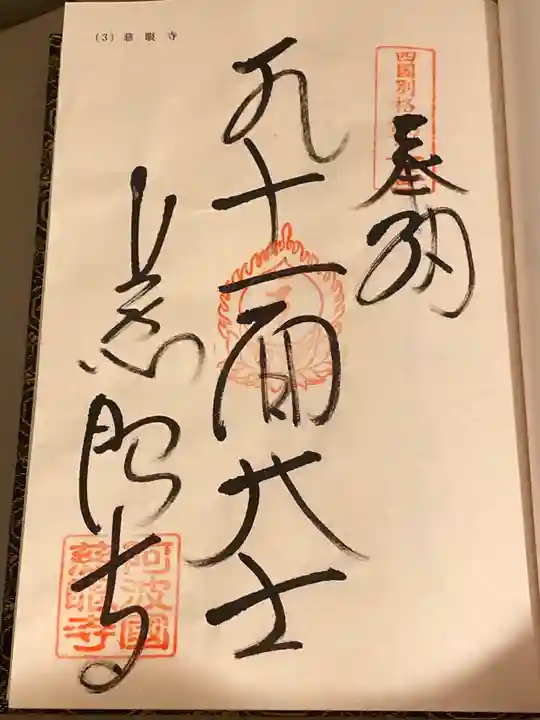 (3) 慈 眼 寺
四國別格
奉納
十一面大士
慈眼寺
阿波國
慈眼寺